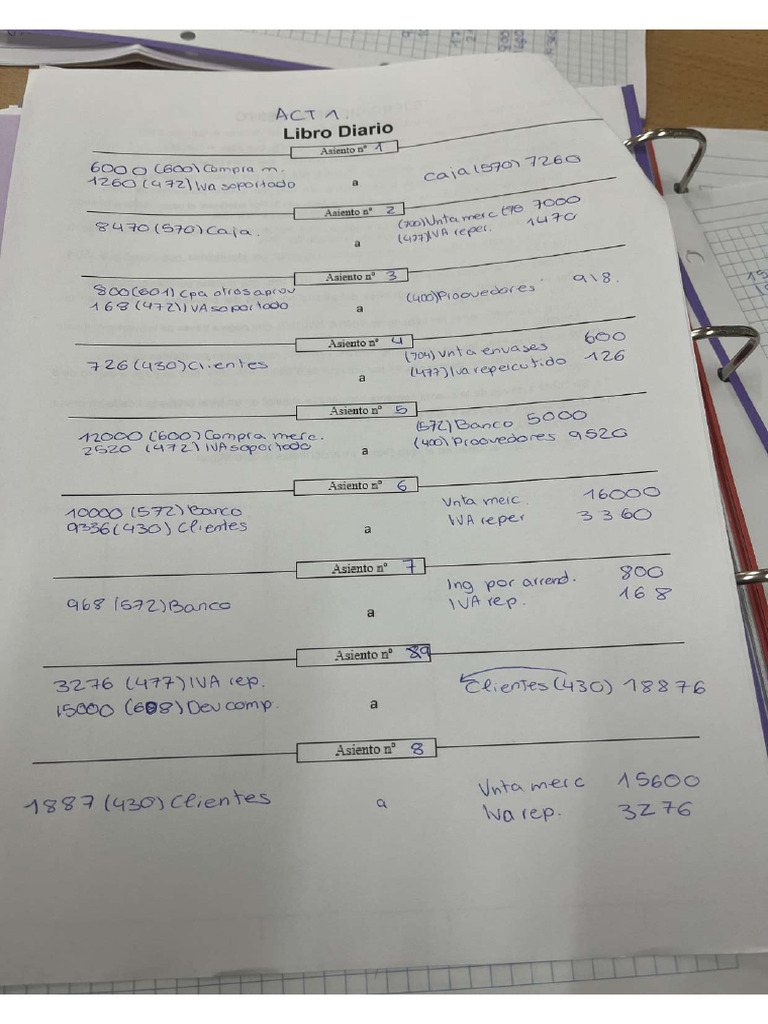 ACT 1.
Libro Diario
Asiento nº 1
6000 (600) Compra m.
1260 (472) Iva soportado a Caja (570) 7260
Asiento nº 2
8470 (570) Caja. a (700) Vnta merc (70 7000
(477) IVA reper. 1470
Asiento nº 3
800 (601) Cpa otros aprov
168 (472) IVA soportado a (400) Proovedores 918.
Asiento nº 4
726 (430) Clientes a (704) Vnta envases 600
(477) Iva repercutido 126
Asiento nº 5
12000 (600) Compra merc. (572) Banco 5000
2520 (472) IVA soportado a (400) Proovedores 9520
Asiento nº 6
10000 (572) Banco Vnta merc. 16000
9336 (430) Clientes a IVA reper 3360
Asiento nº 7
968 (572) Banco a Ing por arrend. 800
IVA rep. 168
Asiento nº 89
3276 (477) IVA rep. Clientes (430) 18876
15000 (608) Dev comp. a
Asiento nº 8
1887 (430) Clientes a Vnta merc 15600
Iva rep. 3276